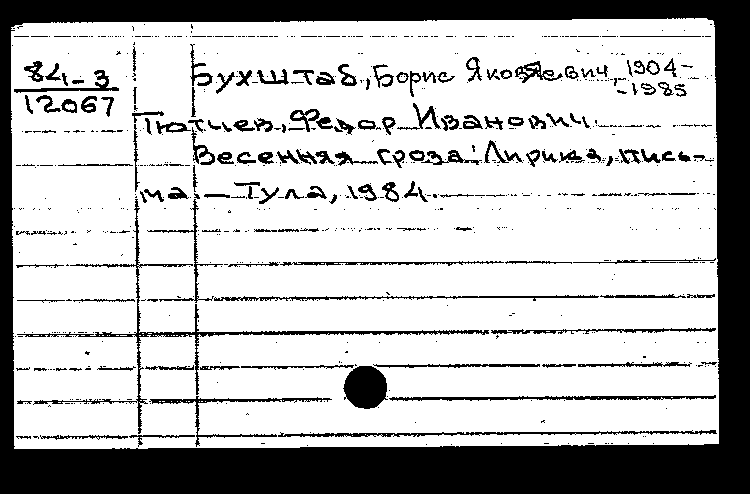 84-3
12067
Бухштаб, Борис Яковлевич, 1904-
-1985
Тютчев, Федор Иванович.
Весенняя гроза: Лирика, пись-
ма. – Тула, 1984.